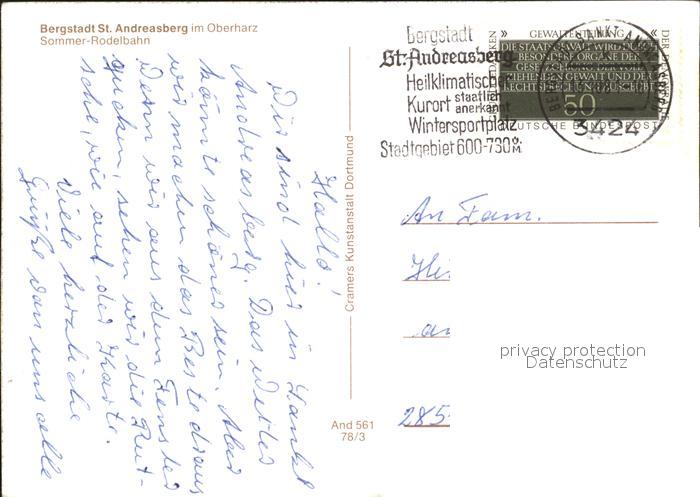 Bergstadt St. Andreasberg im Oberharz
Sommer-Rodelbahn
Hallo!
Wir sind hier in Sankt
Andreasberg. Das Wetter
könnte schöner sein. Aber
wir machen das Beste draus
Denn wir aus dem Fenster
gucken, sehen wir die Rut-
sche, wie auf der Karte.
Viele herzliche
Grüße von uns alle
Cramers Kunstanstalt Dortmund
And 561
78/3
Bergstadt
St. Andreasberg
Heilklimatischer
Kurort staatlich
anerkannt
Wintersportplatz
Stadtgebiet 600-730 ü. M.
GEWALTENTEILUNG
DIE STAATSGEWALT WIRD DURCH
BESONDERE ORGANE DER
GESETZGEBUNG, DER VOLL
ZIEHENDEN GEWALT UND DER
RECHTSPRECHUNG AUSGEÜBT
50
DEUTSCHE BUNDESPOST
3424
An Fam.
Hei
an
285
privacy protection
Datenschutz